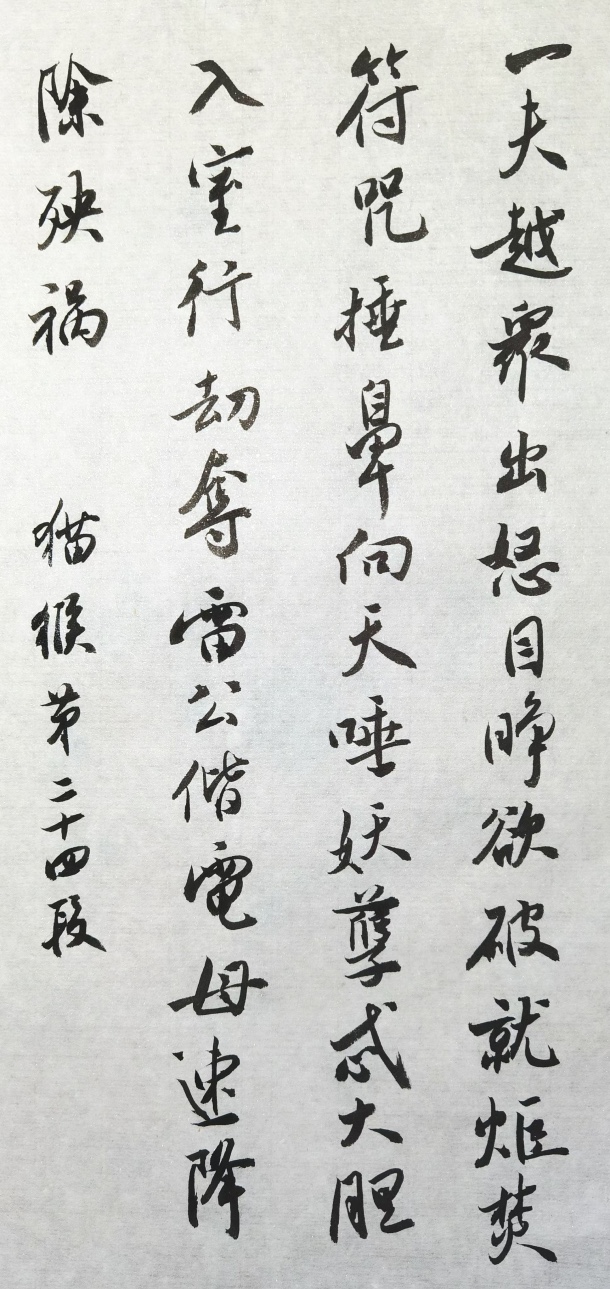 一夫越眾出怒目睁欲破就炬焚
符咒捶鼻向天唾妖孽忒大胆
入室行劫奪雷公偕電母速降
除殃祸 猫猴第二十四段